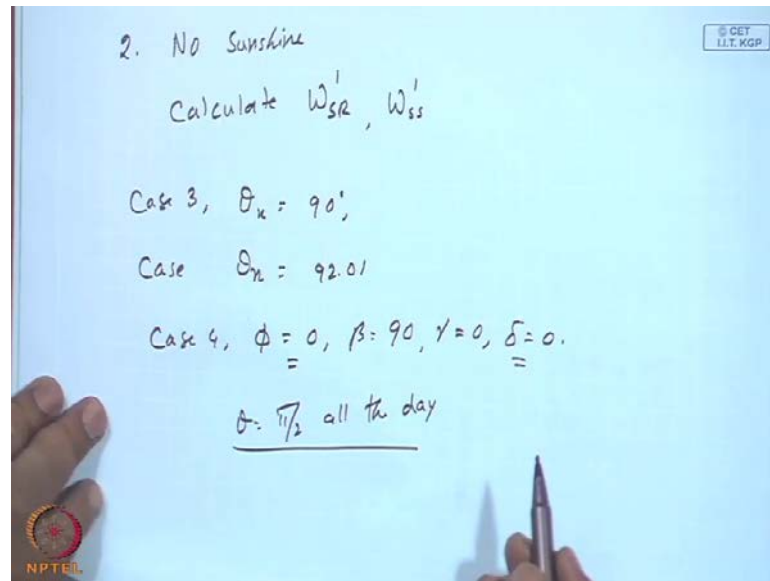 © CET
I.I.T. KGP
2. No Sunshine
Calculate ω'SR, ω'ss
Case 3, θn = 90°,
Case θn = 92.01
Case 4, ϕ = 0, β = 90, γ = 0, δ = 0.
θ = π/2 all the day
NPTEL